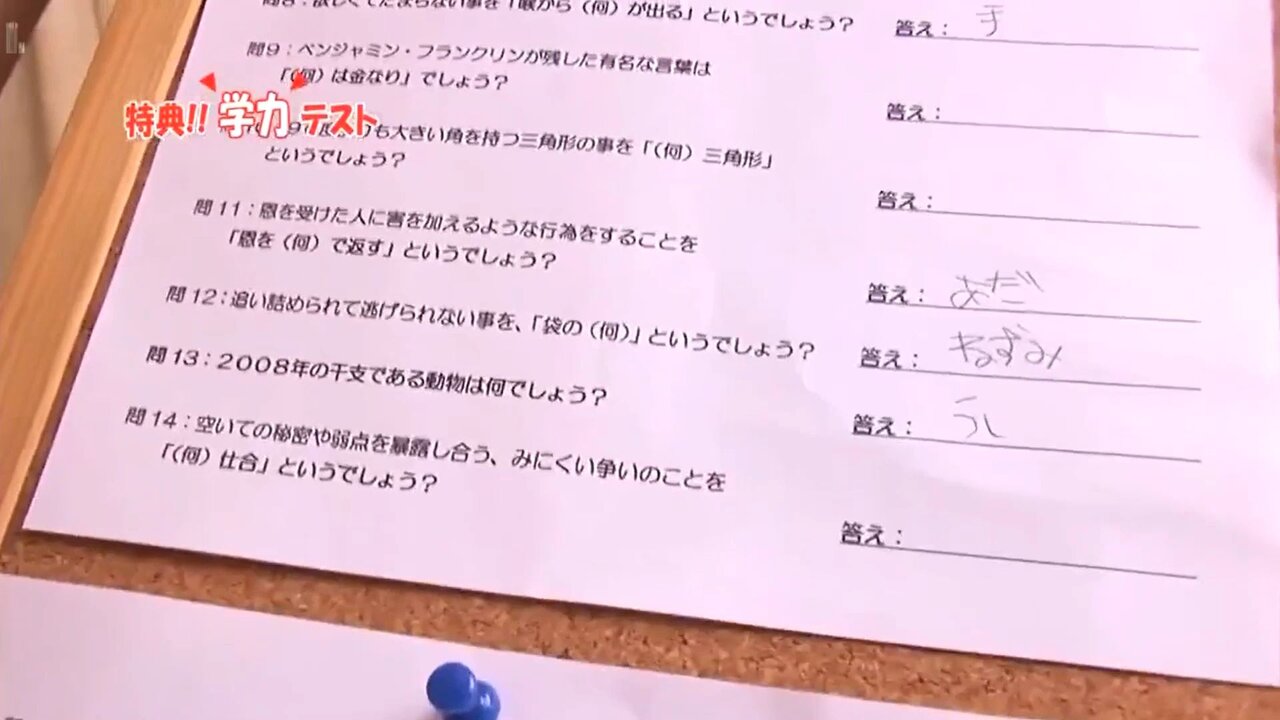 問8：欲しくてたまらない事を「喉から（何）が出る」というでしょう？
答え： 手
問9：ベンジャミン・フランクリンが残した有名な言葉は
「（何）は金なり」でしょう？
答え：
特典!! 学力テスト
も大きい角を持つ三角形の事を「（何）三角形」
というでしょう？
答え：
問11：恩を受けた人に害を加えるような行為をすることを
「恩を（何）で返す」というでしょう？
答え： あだ
問12：追い詰められて逃げられない事を、「袋の（何）」というでしょう？
答え： ねずみ
問13：２００８年の干支である動物は何でしょう？
答え： うし
問14：空いての秘密や弱点を暴露し合う、みにくい争いのことを
「（何）仕合」というでしょう？
答え：